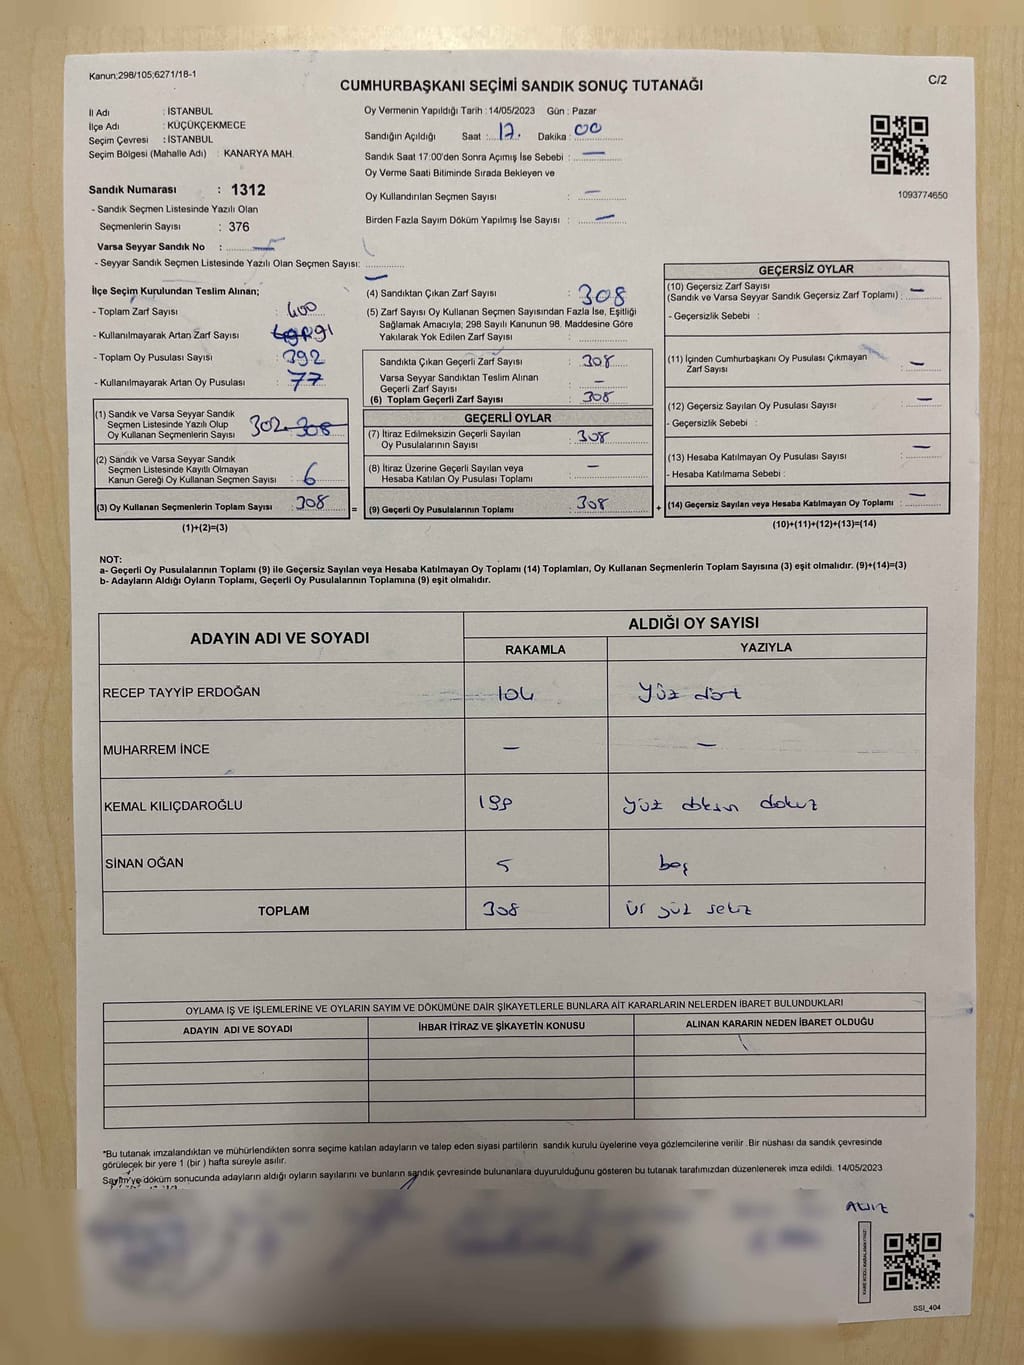 Kanun;298/105;6271/18-1
C/2
CUMHURBAŞKANI SEÇİMİ SANDIK SONUÇ TUTANAĞI
İl Adı : İSTANBUL
İlçe Adı : KÜÇÜKÇEKMECE
Seçim Çevresi : İSTANBUL
Seçim Bölgesi (Mahalle Adı) : KANARYA MAH.
Sandık Numarası : 1312
- Sandık Seçmen Listesinde Yazılı Olan
Seçmenlerin Sayısı : 376
Varsa Seyyar Sandık No : —
- Seyyar Sandık Seçmen Listesinde Yazılı Olan Seçmen Sayısı: —
Oy Vermenin Yapıldığı Tarih : 14/05/2023 Gün : Pazar
Sandığın Açıldığı Saat : 17. Dakika : 00
Sandık Saat 17:00'den Sonra Açımış İse Sebebi : —
Oy Verme Saati Bitiminde Sırada Bekleyen ve
Oy Kullandırılan Seçmen Sayısı : —
Birden Fazla Sayım Döküm Yapılmış İse Sayısı : —
1093774650
İlçe Seçim Kurulundan Teslim Alınan;
- Toplam Zarf Sayısı : 400
- Kullanılmayarak Artan Zarf Sayısı : 91
- Toplam Oy Pusulası Sayısı : 392
- Kullanılmayarak Artan Oy Pusulası : 77
(1) Sandık ve Varsa Seyyar Sandık
Seçmen Listesinde Yazılı Olup
Oy Kullanan Seçmenlerin Sayısı 302 308
(2) Sandık ve Varsa Seyyar Sandık
Seçmen Listesinde Kayıtlı Olmayan
Kanun Gereği Oy Kullanan Seçmen Sayısı : 6
(3) Oy Kullanan Seçmenlerin Toplam Sayısı : 308
(1)+(2)=(3)
=
(4) Sandıktan Çıkan Zarf Sayısı : 308
(5) Zarf Sayısı Oy Kullanan Seçmen Sayısından Fazla İse, Eşitliği
Sağlamak Amacıyla, 298 Sayılı Kanunun 98. Maddesine Göre
Yakılarak Yok Edilen Zarf Sayısı :
Sandıkta Çıkan Geçerli Zarf Sayısı : 308
Varsa Seyyar Sandıktan Teslim Alınan
Geçerli Zarf Sayısı : —
(6) Toplam Geçerli Zarf Sayısı : 308
GEÇERLİ OYLAR
(7) İtiraz Edilmeksizin Geçerli Sayılan
Oy Pusulalarının Sayısı : 308
(8) İtiraz Üzerine Geçerli Sayılan veya
Hesaba Katılan Oy Pusulası Toplamı : —
(9) Geçerli Oy Pusulalarının Toplamı : 308
+
GEÇERSİZ OYLAR
(10) Geçersiz Zarf Sayısı
(Sandık ve Varsa Seyyar Sandık Geçersiz Zarf Toplamı) : —
- Geçersizlik Sebebi :
(11) İçinden Cumhurbaşkanı Oy Pusulası Çıkmayan
Zarf Sayısı : —
(12) Geçersiz Sayılan Oy Pusulası Sayısı : —
- Geçersizlik Sebebi :
(13) Hesaba Katılmayan Oy Pusulası Sayısı : —
- Hesaba Katılmama Sebebi :
(14) Geçersiz Sayılan veya Hesaba Katılmayan Oy Toplamı : —
(10)+(11)+(12)+(13)=(14)
NOT:
a- Geçerli Oy Pusulalarının Toplamı (9) ile Geçersiz Sayılan veya Hesaba Katılmayan Oy Toplamı (14) Toplamları, Oy Kullanan Seçmenlerin Toplam Sayısına (3) eşit olmalıdır. (9)+(14)=(3)
b- Adayların Aldığı Oyların Toplamı, Geçerli Oy Pusulalarının Toplamına (9) eşit olmalıdır.
ADAYIN ADI VE SOYADI ALDIĞI OY SAYISI
RAKAMLA YAZIYLA
RECEP TAYYİP ERDOĞAN 104 Yüz dört
MUHARREM İNCE — —
KEMAL KILIÇDAROĞLU 199 yüz doksan dokuz
SİNAN OĞAN 5 beş
TOPLAM 308 üç yüz sekiz
OYLAMA İŞ VE İŞLEMLERİNE VE OYLARIN SAYIM VE DÖKÜMÜNE DAİR ŞİKAYETLERLE BUNLARA AİT KARARLARIN NELERDEN İBARET BULUNDUKLARI
ADAYIN ADI VE SOYADI İHBAR İTİRAZ VE ŞİKAYETİN KONUSU ALINAN KARARIN NEDEN İBARET OLDUĞU
*Bu tutanak imzalandıktan ve mühürlendikten sonra seçime katılan adayların ve talep eden siyasi partilerin sandık kurulu üyelerine veya gözlemcilerine verilir .Bir nüshası da sandık çevresinde
görülecek bir yere 1 (bir ) hafta süreyle asılır.
Sayım ve döküm sonucunda adayların aldığı oyların sayılarını ve bunların sandık çevresinde bulunanlara duyurulduğunu gösteren bu tutanak tarafımızdan düzenlenerek imza edildi. 14/05/2023
SSI_404